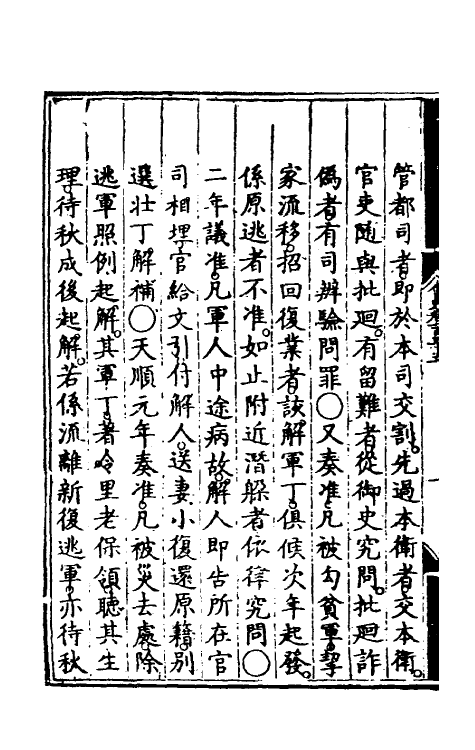 管都司者。即於本司交割。先過本衛者。交本衛。
官吏随與批廻。有留難者。從御史究問。批廻詐
偽者。有司辨驗問罪〇又奏准。凡被勾貧軍。挈
家流移。招回復業者。該解軍丁。俱候次年起發。
係原逃者不准。如止附近潛躲者。依律究問〇
二年議准。凡軍人中途病故。解人即告所在官
司相埋。官給文引付解人。送妻小復還原籍。别
選壯丁解補〇天順元年奏准。凡被災去處。除
逃軍照例起解。其軍丁。著令里老保領。聽其生
理。待秋成後起解。若係流離新復逃軍。亦待秋